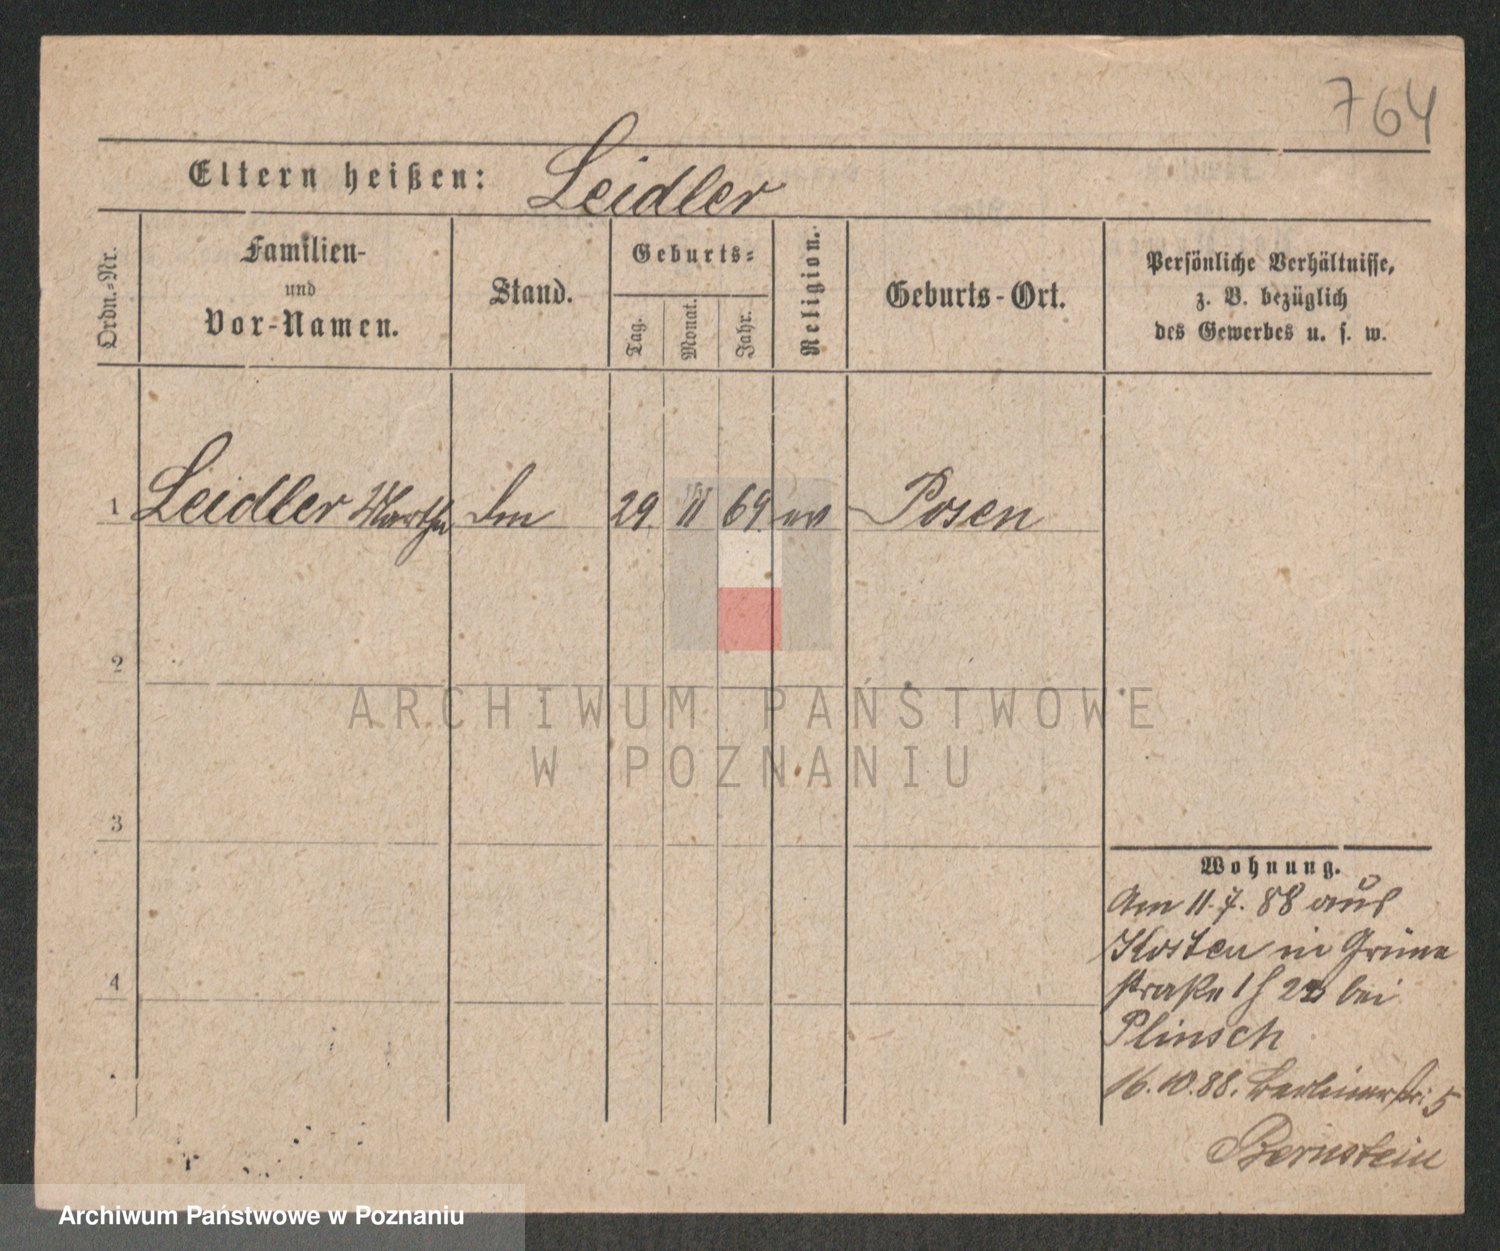 764
Eltern heißen: Leidler
Ordn.-Nr.
Familien-
und
Vor-Namen.
Stand.
Geburts-
Tag.
Monat.
Jahr.
Religion.
Geburts-Ort.
Persönliche Verhältnisse,
z. B. bezüglich
des Gewerbes u. s. w.
1 Leidler Martha 29. 11 69. ev Posen
2
3
4
Wohnung.
Am 11.7.88 aus
Kosten in Grüne
straße bei
Plinsch
16.10.88. Berlinerstr: 5
Bernstein
ARCHIWUM PAŃSTWOWE
W POZNANIU
Archiwum Państwowe w Poznaniu